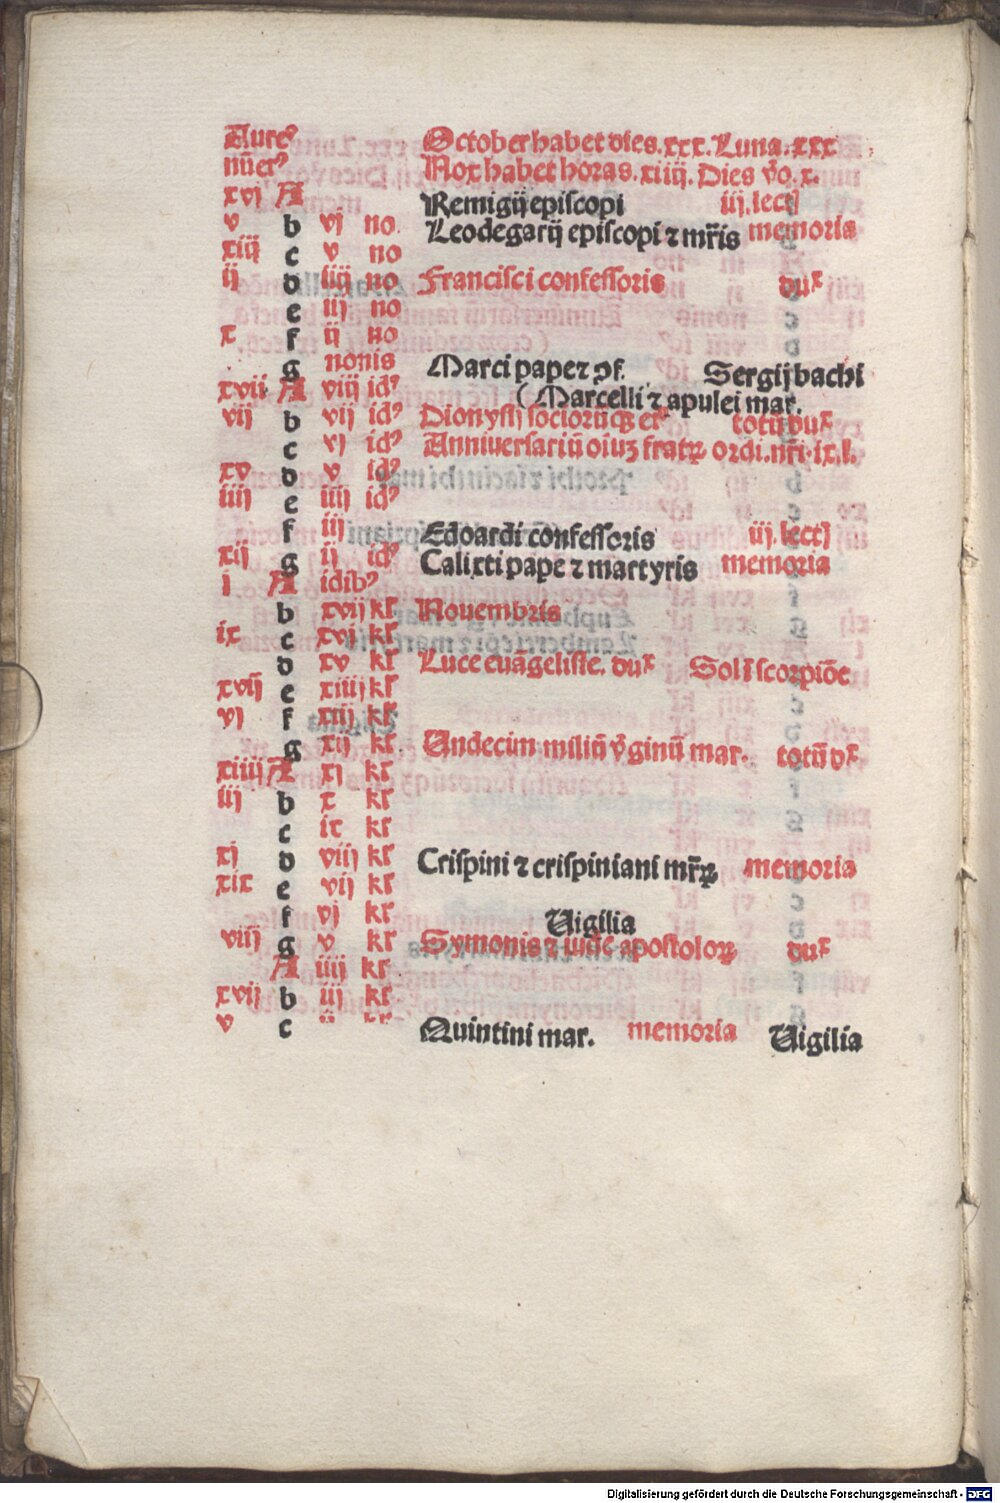 Aure⁹ October habet dies.xxx.Luna.xxx
nūer⁹ Nox habet horas.xiiij.Dies v̄o.x.
xvj A Remigij episcopi iij.lectꝭ
v b vj no. Leodegarij episcopi ⁊ mr̄is memoria
xiij c v no
ij d iiij no Francisci confessoris dux
e iij no
x f ij no
g nonis Marci pape ⁊ ꝯf. Sergij bachi
xvij A viij id⁹ (Marcelli ⁊ apulei mar.
vij b vij id⁹ Dionysij sociorūqꝫ eꝰ totū dux
c vj id⁹ Anniversariū oiuꝫ fratꝝ ordi.nr̄i.ix.l.
xv d v id⁹
iiij e iiij id⁹
f iij Edoardi confessoris iij.lectꝭ
xij g ij id⁹ Calixti pape ⁊ martyris memoria
j A idib⁹
b xvij kl̄ Novembris
ix c xvj kl̄
d xv kl̄ Luce evāgeliste. dux Sol ī scorpiōe
xvij e xiiij kl̄
vj f xiij kl̄
g xij kl̄ Undecim miliū v̄ginū mar. totū dx
xiiij A xj kl̄
iij b x kl̄
c ix kl̄
xj d viij kl̄ Crispini ⁊ crispiniani mr̄ꝝ memoria
xix e vij kl̄
f vj kl̄ Vigilia
viij g v kl̄ Symonis ⁊ iude apostoloꝝ dux
A iiij kl̄
xvij b iij kl̄
v c ij kl̄ Quintini mar. memoria Vigilia
Digitalisierung gefördert durch die Deutsche Forschungsgemeinschaft - DFG